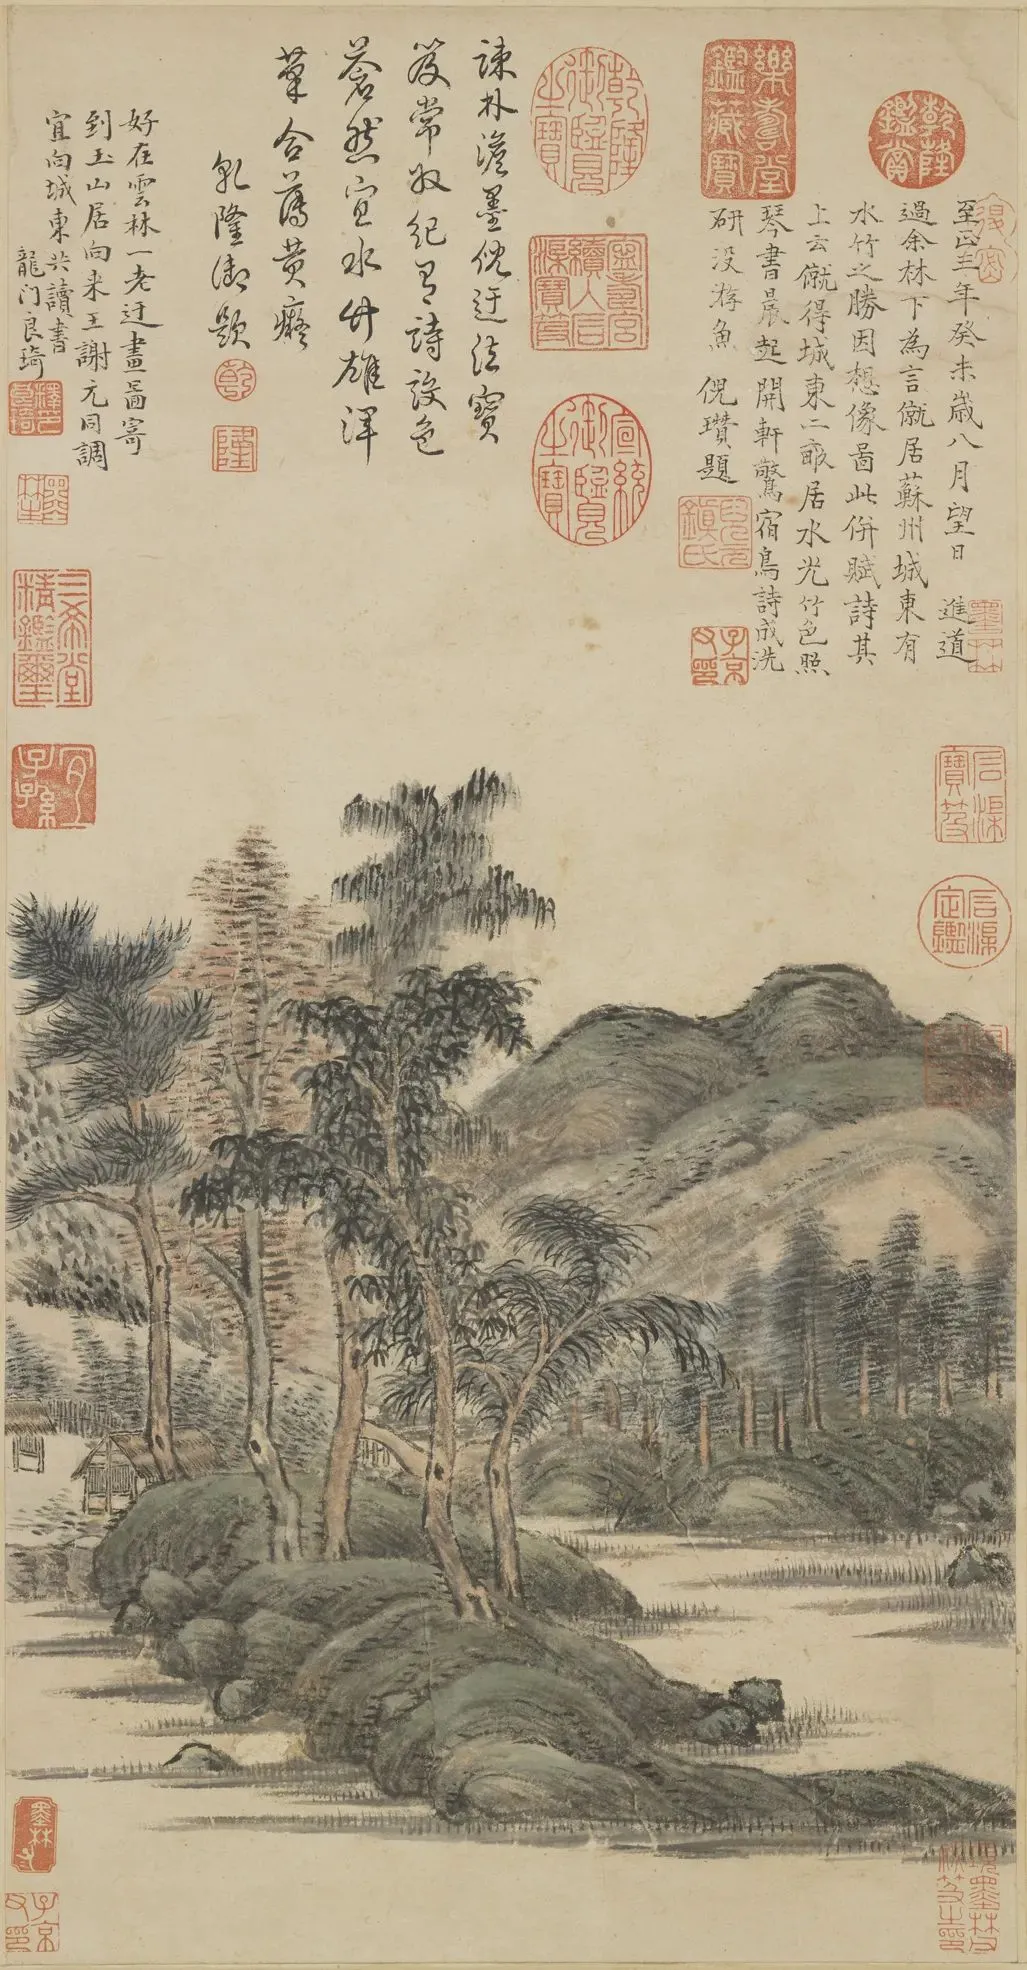 至正三年癸未歲八月望日　進道
過余林下為言僦居蘇州城東有
水竹之勝因想像啚此併賦詩其
上云僦得城東二畝居水光竹色照
琴書晨起開軒驚宿鳥詩成洗
研没游魚　倪瓚題
疎林澹墨倪迂法寶
笈常教紀多詩設色
蒼然宜水竹雄渾
筆合藹黄癡
乾隆御題
好在雲林一老迂畫啚寄
到玉山居向来王謝元同調
宜向城東共讀書
龍门良琦
乾隆鑑賞
樂壽堂鑑藏寶
乾隆御覽之寶
石渠寶笈
寧壽宮續入石渠寶笈
宣統御覽之寶
石渠定鑑
三希堂精鑑璽
宜子孫
乾
隆
墨林
子京父印
項墨林父祕笈之印